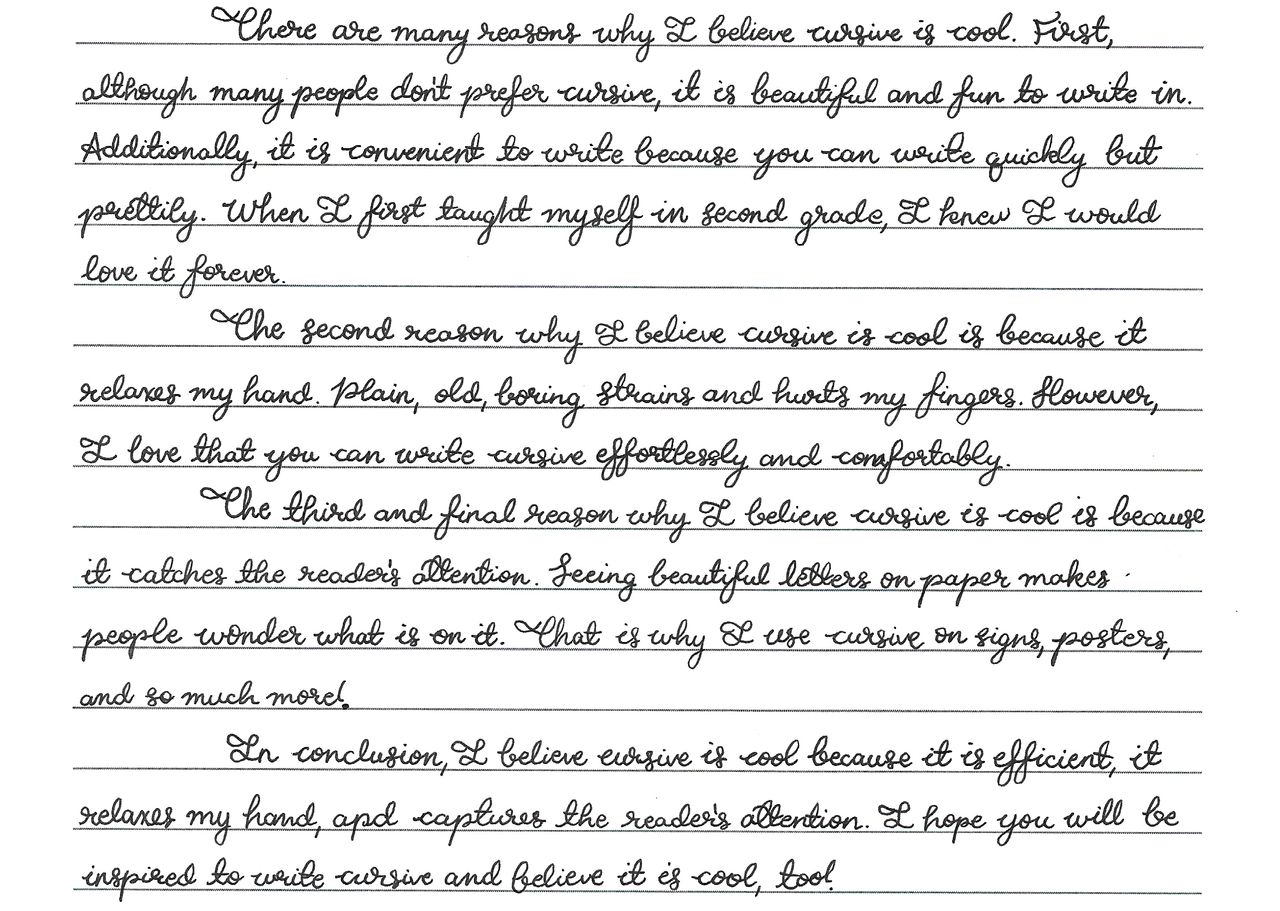 There are many reasons why I believe cursive is cool. First,
although many people don't prefer cursive, it is beautiful and fun to write in.
Additionally, it is convenient to write because you can write quickly but
prettily. When I first taught myself in second grade, I knew I would
love it forever.
The second reason why I believe cursive is cool is because it
relaxes my hand. Plain, old, boring strains and hurts my fingers. However,
I love that you can write cursive effortlessly and comfortably.
The third and final reason why I believe cursive is cool is because
it catches the reader's attention. Seeing beautiful letters on paper makes
people wonder what is on it. That is why I use cursive on signs, posters,
and so much more!
In conclusion, I believe cursive is cool because it is efficient, it
relaxes my hand, and captures the reader's attention. I hope you will be
inspired to write cursive and believe it is cool, too!